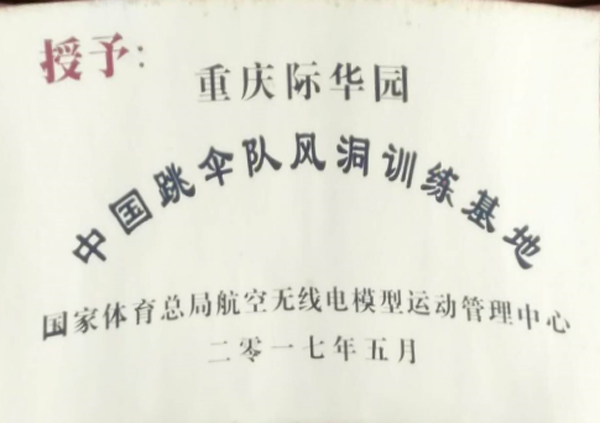 授予：
重庆际华园
中国跳伞队风洞训练基地
国家体育总局航空无线电模型运动管理中心
二零一七年五月